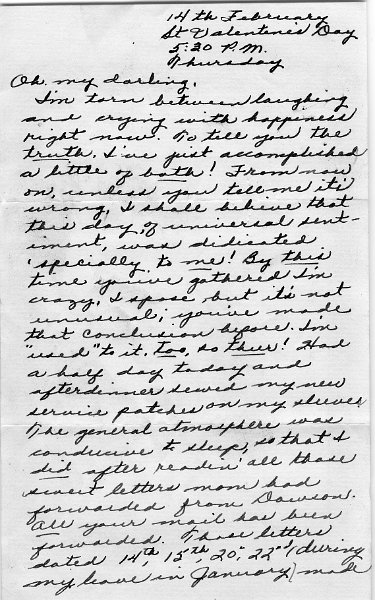 14th February
St Valentine's Day
5:20 P.M.
Thursday
Oh my darling,
I'm torn between laughing
and crying with happiness
right now. To tell you the
truth, I've just accomplished
a little of both! From now
on, unless you tell me it's
wrong, I shall believe that
this day of universal sent-
iment, was dedicated
'specially to me! By this
time you've gathered I'm
crazy, I spose but it's not
unusual; you've made
that conclusion before. I'm
"used" to it, too, so thur! Had
a half day today and
afterdinner sewed my new
service patches on my sleeves.
The general atmosphere was
conducive to sleep, so that I
did after readin' all those
sweet letters mom had
forwarded from Dawson.
All your mail has been
forwarded. Those letters
dated 14th, 15th, 20, 22nd (during
my leave in January) made